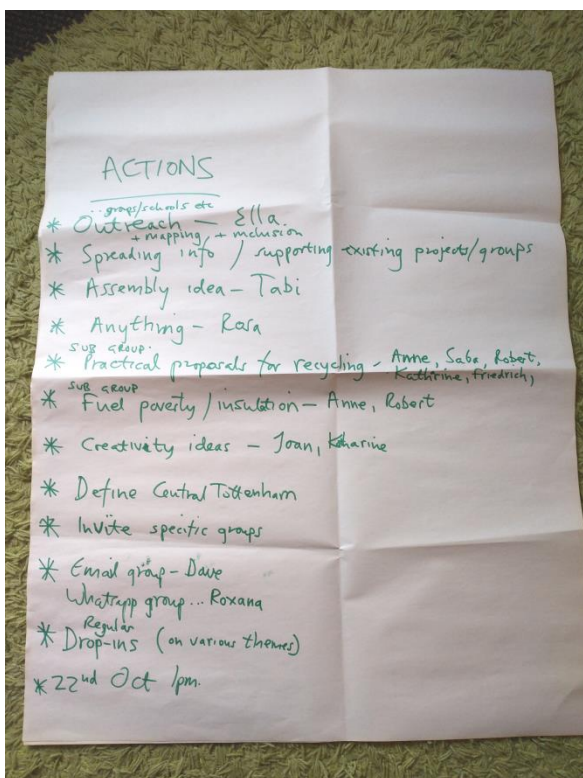 ACTIONS
groups/schools etc
* Outreach - Ella.
+ mapping + inclusion
* Spreading info / supporting existing projects/groups
* Assembly idea - Tabi
* Anything - Rosa
SUB GROUP.
* Practical proposals for recycling - Anne, Saba, Robert,
Kathrine, Friedrich,
SUB GROUP
* Fuel poverty / insulation - Anne, Robert
* Creativity ideas - Joan, Katharine
* Define Central Tottenham
* Invite specific groups
* Email group - Dave
Whatsapp group... Roxana
Regular
* Drop-ins (on various themes)
* 22nd Oct 1pm.